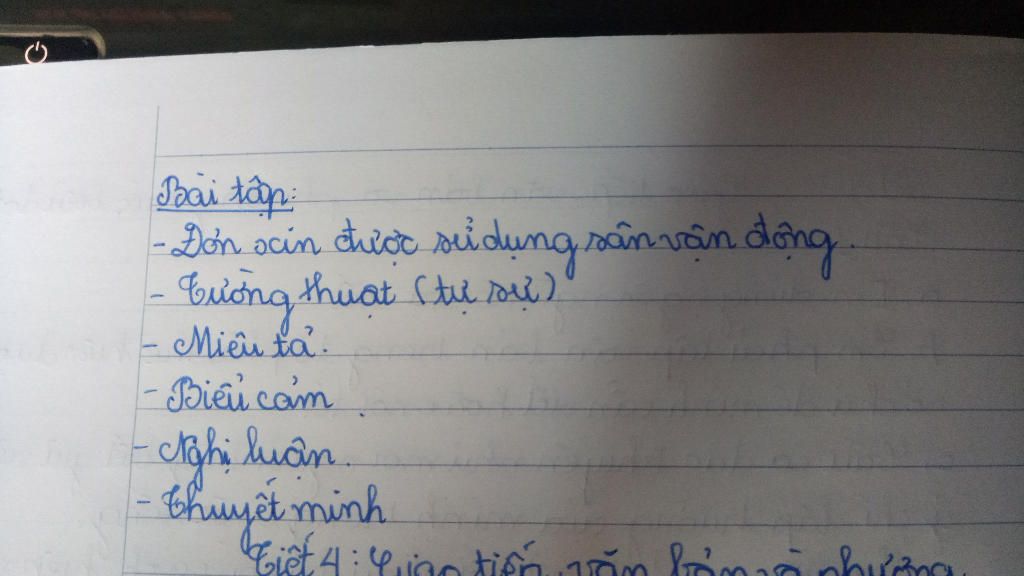 Bài tập:
- Đơn xin được sử dụng sân vận động.
- Tường thuật (tự sự)
- Miêu tả.
- Biểu cảm.
- Nghị luận.
- Thuyết minh
Tiết 4: Giao tiếp, văn bản và phương